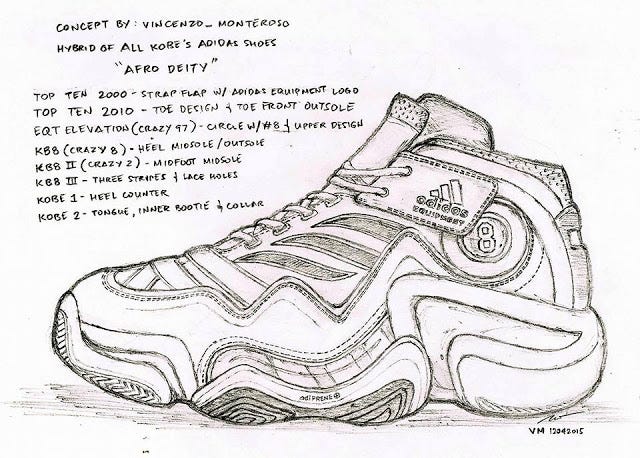 CONCEPT BY: VINCENZO_MONTEROSO
HYBRID OF ALL KOBE'S ADIDAS SHOES
"AFRO DEITY"
TOP TEN 2000 - STRAP FLAP W/ ADIDAS EQUIPMENT LOGO
TOP TEN 2010 - TOE DESIGN & TOE FRONT OUTSOLE
EQT ELEVATION (CRAZY 97) - CIRCLE W/#8 & UPPER DESIGN
KB8 (CRAZY 8) - HEEL MIDSOLE/OUTSOLE
KB8 II (CRAZY 2) - MIDFOOT MIDSOLE
KB8 III - THREE STRIPES & LACE HOLES
KOBE 1 - HEEL COUNTER
KOBE 2 - TONGUE, INNER BOOTIE & COLLAR
adidas
EQUIPMENT
8
adiPRENE
VM 12042015